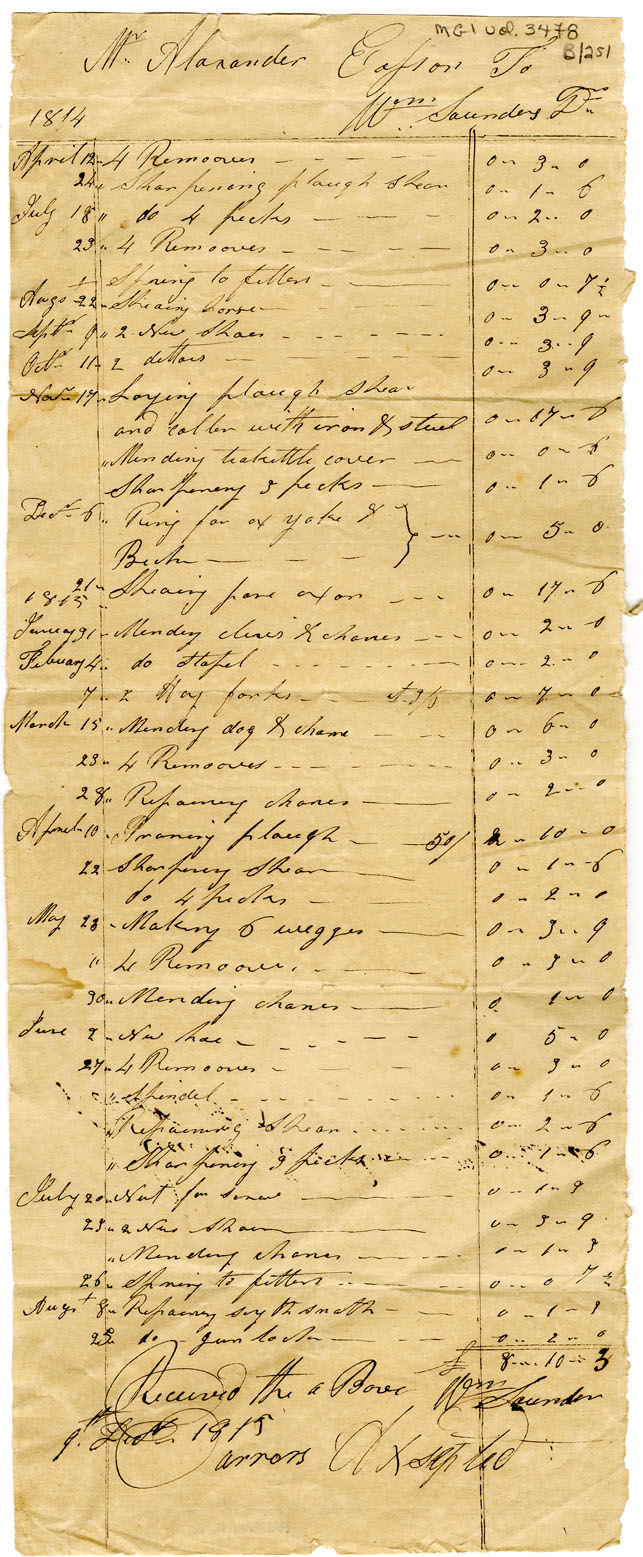 MG1 Vol. 3478
B/251
Mr. Alaxander Eason To
1814 Wm Saunders Dr
April 12 " 4 Remooves 0 " 3 " 0
24 " Sharpening plaugh shear 0 " 1 " 6
July 18 " do 4 pecks 0 " 2 " 0
23 " 4 Remooves 0 " 3 " 0
Spring to fetters 0 " 0 " 7 1/2
Augst 22 " Shoaing horse 0 " 3 " 9
Septr 9 " 2 New Shoes 0 " 3 " 9
Octr 11 " 2 dettos 0 " 3 " 9
Novr 17 " Laying plaugh shear
and colter with iron & steel 0 " 17 " 6
" Mending teakettle cover 0 " 0 " 6
Sharpening 3 pecks 0 " 1 " 6
Decr 6 " Ring for ox yoke &
0 " 5 " 0
21 " Shoaing pare oxon 0 " 17 " 6
1815
January 31 " Mending cleves & chanes 0 " 2 " 0
February 4 " do stapel 0 " 2 " 0
7 " 2 Hay forks at 3/6 0 " 7 " 0
March 15 " Mending dog & chane 0 " 6 " 0
23 " 4 Remooves 0 " 3 " 0
28 " Repairing chanes 0 " 2 " 0
Aprnel 10 " Iraning plaugh 50/ 2 " 10 " 0
22 Sharpening Shear 0 " 1 " 6
do 4 pecks 0 " 2 " 0
May 23 " Making 6 wegges 0 " 3 " 9
" 4 Remooves 0 " 3 " 0
30 " Mending chanes 0 1 " 0
June 2 " New hae 0 5 " 0
27 " 4 Remooves 0 " 3 " 0
" Spindel 0 " 1 " 6
" Repairing Shear 0 " 2 " 6
" Sharpening 3 pecks 0 " 1 " 6
July 20 " Nut for screw 0 " 1 " 3
23 " 2 New shoes 0 " 3 " 9
" Mending chanes 0 " 1 " 3
26 " Spring to fetters 0 " 0 7 1/2
Augst 8 " Repairing sythsnath 0 " 1 " 3
25 " do gun lock 0 " 2 " 0
£ 8 " 10 " 3
Received the a Bove Wm Saunders
9th Decr 1815
Earrors Axsepted